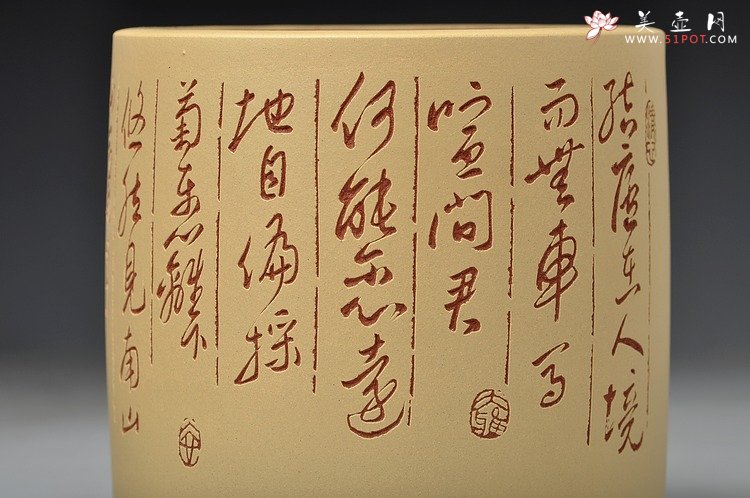 結廬在人境
而無車馬
喧問君
何能尔心遠
地自偏採
菊東籬下
悠然見南山
美壶网
WWW.51POT.COM